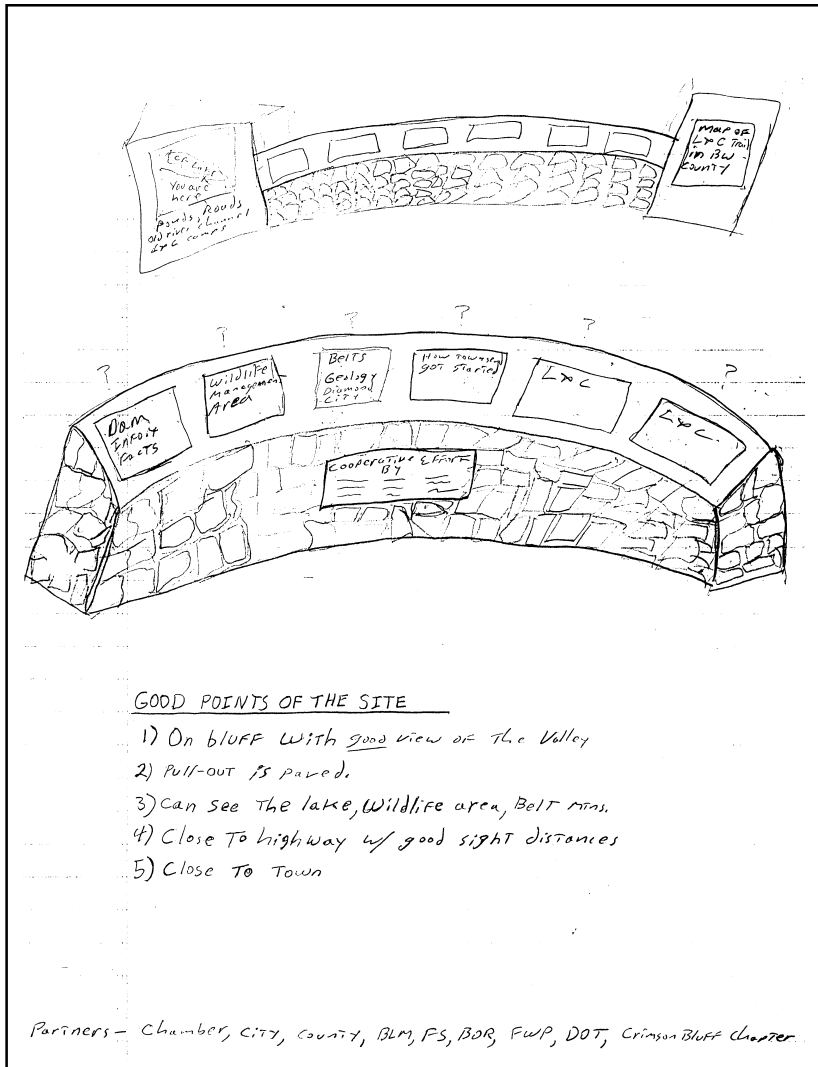 You are
here
Ponds, Roads
old river channel
L&C camps
Map of
L&C Trail
in BW
County
? ? ? ? ? ?
Dam
Info &
Facts
Wildlife
Management
Area
Belts
Geology
Diamond
City
How Townsend
got started
L&C
L&C
Cooperative Effort
By
GOOD POINTS OF THE SITE
1) On bluff with good view of the Valley
2) Pull-out is paved.
3) Can see the lake, Wildlife area, Belt Mtns.
4) Close to highway w/ good sight distances
5) Close to Town
Partners - Chamber, City, County, BLM, FS, BOR, FWP, DOT, Crimson Bluff Chapter